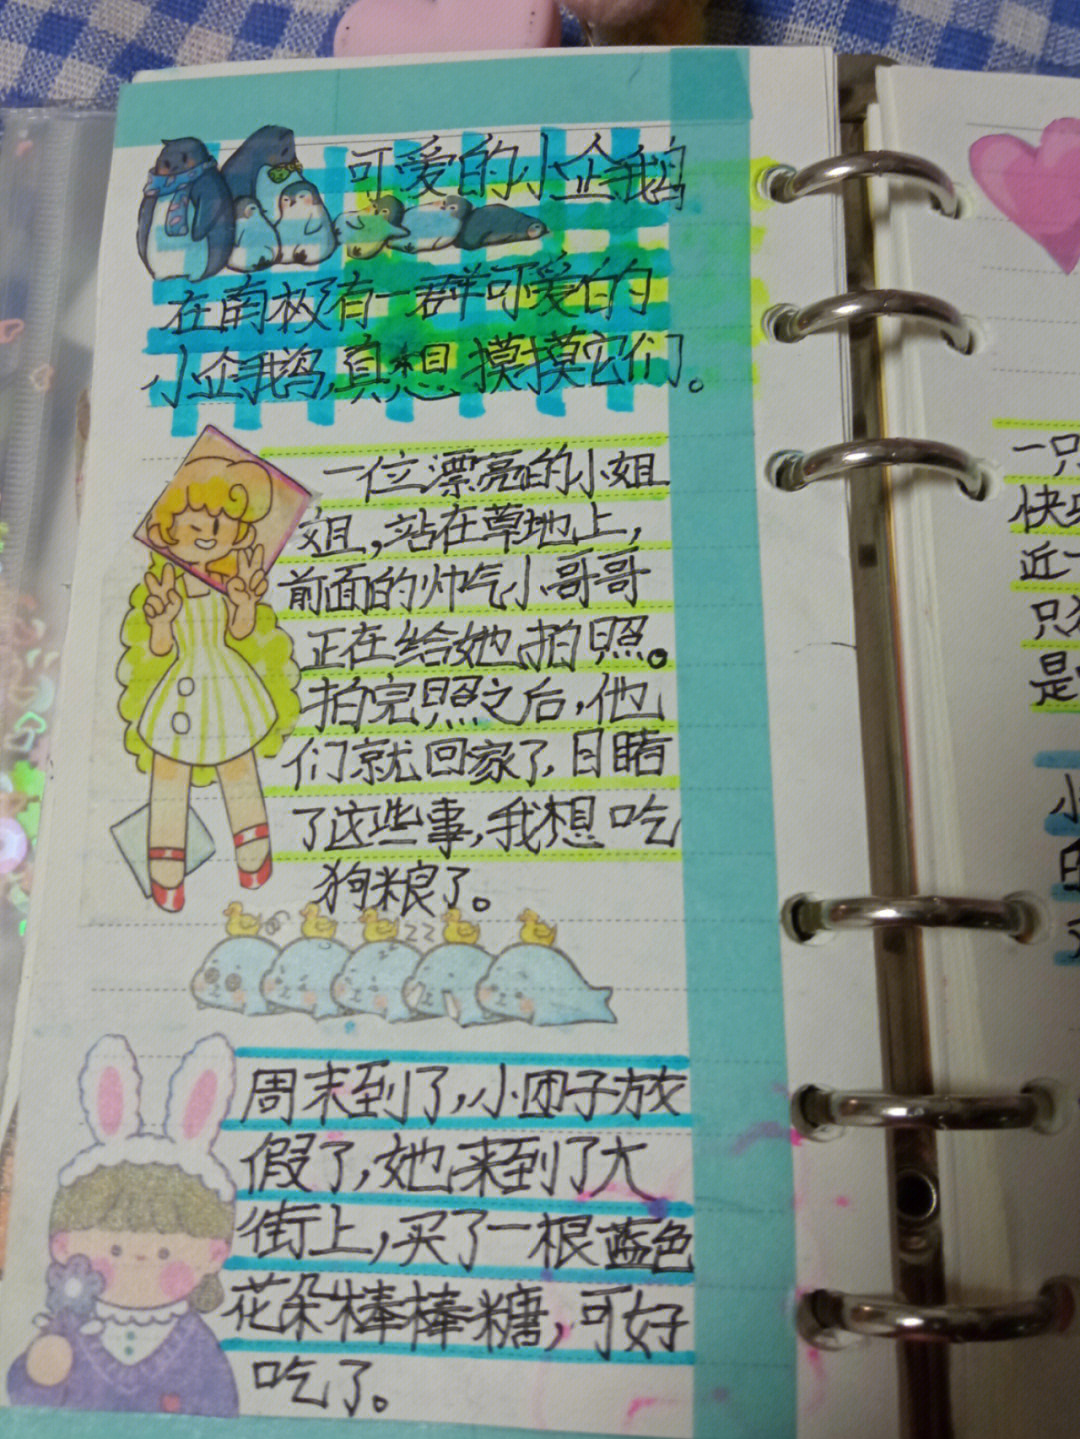 可爱的小企鹅
在南极有一群可爱的
小企鹅,真想摸摸它们。
一位漂亮的小姐
姐,站在草地上,
前面的帅气小哥哥
正在给她拍照。
拍完照之后,他
们就回家了,目睹
了这些事,我想吃
狗粮了。
zz
周末到了,小团子放
假了,她来到了大
街上,买了一根蓝色
花朵棒棒糖,可好
吃了。
一只
快乐
近一
只
是
小